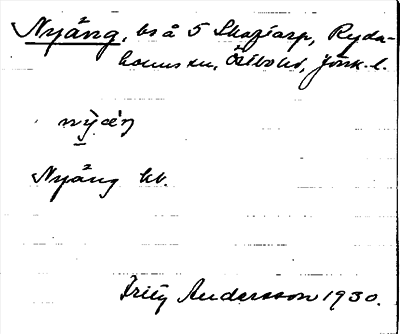 Nyäng, bs å 5 Skogtorp, Ryda-
holms sn, Östbo hd, Jönk. l.
Nyäng kb.
Fritz Andersson 1930.